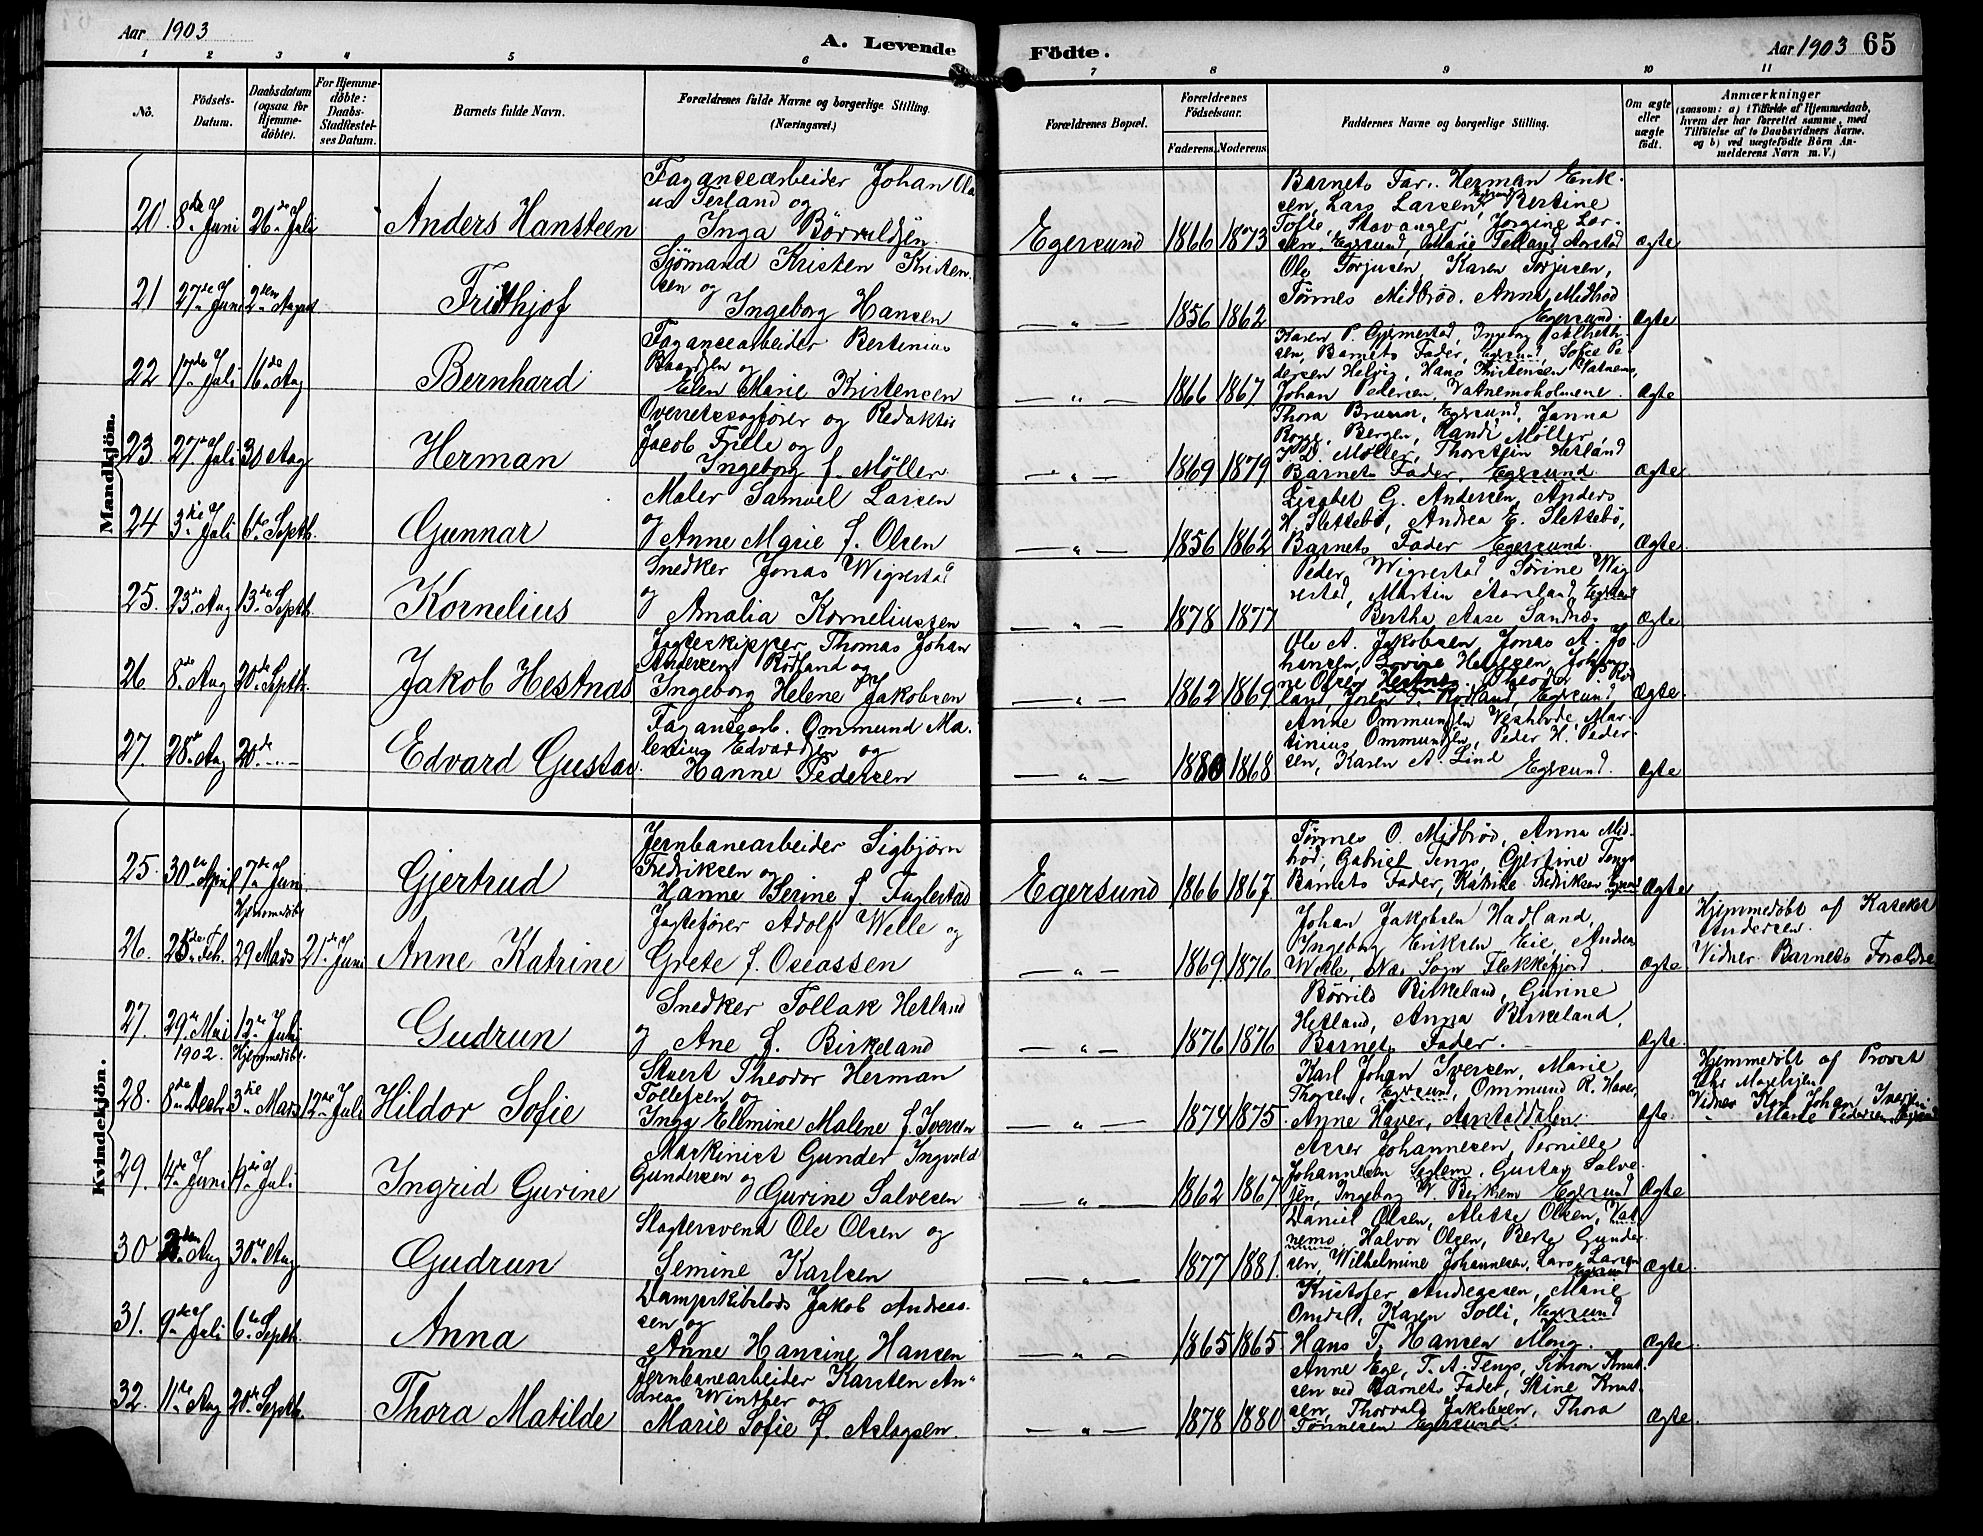 Aar 1903
A. Levende
Födte.
Aar 1903 65
1 2 3 4 5 6 7 8 9 10 11
No.
Födsels-
Datum.
Daabsdatum
(ogsaa for
Hjemme-
döbte).
For Hjemme-
döbte:
Daabs-
Stadfæstel-
ses Datum.
Barnets fulde Navn.
Forældrenes fulde Navne og borgerlige Stilling.
(Næringsvei.)
Forældrenes Bopæl.
Forældrenes
Födselsaar.
Faderens. Moderens.
Faddernes Navne og borgerlige Stilling.
Om ægte
eller
uægte
födt.
Anmærkninger
(saasom: a) i Tilfælde af Hjemmedaab,
hvem der har forrettet samme, med
Tilföielse af to Daabsvidners Navne.
og b) ved uægtefödte Börn An-
melderens Navn m. V.)
Mandkjön.
20. 8de Juni 26de Juli
Anders Hansteen
Fayancearbeider Johan Ola
us Terland og
Inga Börruldsen
Egersund 1866 1873
Barnets Far. Herman Erik-
sen, Lars Larsen, Egersund, Bertine
Tofte, Stavanger, Jorgine Lar-
sen, Egersund, Marie Telland Aarstad
Ægte
21 27de Juni 2den August
Frithjof
Sjömand Kristen Kristen-
sen og
Ingeborg Hansen
— " — 1856 1862
Ole Torjusen, Karen Torjusen,
Tönnes Midbröd. Anna Midbröd
Egersund.
Ægte
22 17de Juli 16de Aug
Bernhard
Fayancearbeider Bertinius
Baardsen og
Elen Marie Kristensen
— " — 1866 1867
Karen P. Gyermestad, Ingeborg
sen, Barnets Fader, Egersund, Sofie Pe-
dersen Helvig, Hans Kristensen Vatnemo,
Johan Pedersen, Vatnemoholmene.
Ægte
23 27de Juli 30 Aug
Herman
Overretssagförer og Redaktör
Jacob Fjelle og
Ingeborg f. Möller
— " — 1869 1879
Thora Bruun, Egersund, Janna
Rogge, Bergen, Randi Möller,
Möller, Thorstein Hetland
Barnets Fader, Egersund
Ægte
24 3die Juli 6te Septb.
Gunnar
Maler Samuel Larsen
og Anne Marie f. Olsen
— " — 1856 1862
Lisabet G. Andersen, Anders
H. Slettebö, Andrea E. Slettebö,
Barnets Fader Egersund.
Ægte
25. 23de Aug 13de Septb.
Kornelius
Snedker Jonas Wigrestad
og
Amalia Korneliussen
— " — 1878 1877
Peder Wigrestad Sörine Wig-
restad, Martin Aarsland, Egersund
Bertha Aase Sandnæs
Ægte
26 8de Aug 20de Septb.
Jakob Hestnæs
Jagteskipper Thomas Johan
Andersen Rödland og
Ingeborg Helene Jakobsen
— " — 1862 1869
Ole A. Jakobsen Jonas A. Jo-
hansen, Lovine Helgesen Johan-
ne Olsen Hestnes. Theodor P. Röd-
land, Rödland, Egersund
Ægte.
27. 28de Aug 20de — " —
Edvard Gustav.
Fayancearb. Ommund Ma-
lenius Edvardsen og
Hanne Pedersen
— " — 1880 1868
Anne Ommundsen Vestbode, Mar-
tinius Ommundsen, Peder H. Peder-
sen, Karen A Lind Egersund.
Ægte
Kvindekjön.
25. 30te April 7de Juni
Gjertrud
Jernbanearbeider Sigbjörn
Fredriksen og
Hanne Serine f. Fuglestad
Egersund 1866 1867
Tönnes O. Midbröd, Anna Mid-
bröd, Gabriel Tengs, Gjertine Tengs
Barnets Fader, Katrine Fredriksen Egersund
Ægte
26. 25de Feb. Hjemmedöbt 29 Mars 21de Juni
Anne Katrine
Jagtefører Adolf Welle og
Grete f. Oseassen
— " — 1869 1876
Johan Jakobsen Hadland,
Ingeborg Eriksen Eie, Andrea
Welle, Næs Sogn Flekkefjord.
Ægte
Hjemmedöbt af Kateket
Andersen.
Vidner Barnets Forældre
27. 29de Mai 12te Juli
Gudrun
Snedker Tollak Hetland
og Ane f. Birkeland
— " — 1876 1876
Börrild Birkeland, Gurine
Hetland, Anna Birkeland,
Barnets Fader.
Ægte.
28. 1902. 8de Decbr. Hjemmedöbt. 3die Mars 12te Juli
Hildor Sofie
Stuert Theodor Herman
Tollefsen og
Inga Elmine Malene f. Iversen
— " — 1874 1875
Karl Johan Iversen, Marie
Thorsen, Egersund, Ommund R. Haver,
Anne Haver, Aarstaddalen
Ægte.
Hjemmedöbt af Provst
Chr
Vidner Karl Johan Iversen
Marie Pedersen, Egersund
29. 14de Juni 19de Juli
Ingrid Gurine
Maskinist Gunder Ingvald
Gundersen og
Gurine Salvesen
— " — 1862 1867
Asser Johannesen, Pernille
Johannesen Seglem. Gustav Salve-
sen, Ingeborg Egersund
Ægte
30 2den Aug 30te Aug.
Gudrun
Slagtersvend Ole Olsen og
Semine Karlsen
— " — 1877 1881.
Daniel Olsen, Alette Olsen, Vat-
nemo, Halvor Olsen, Berte Gunder-
sen, Wilhelmine Johannesen, Lars Larsen
Egersund
Ægte.
31. 9de Juli 6te Septb.
Anna
Dampskibslods Jakob Andreas-
sen og
Anne Hansine Hansen
— " — 1865 1865
Kristofer Andreassen, Marie
Omdal, Karen Solli, Egersund
Hans T. Hansen Mong.
Ægte.
32. 11te Aug 20de Septb.
Thora Matilde
Jernbanearbeider Karsten An-
dreas Winther og
Marie Sofie f. Aslagsen.
— " — 1878 1880
Anne Ege, T. A. Tengs, Simon Knut-
sen ved Barnets Fader, Stine Knut-
sen, Thorvald Jakobsen, Thora
Tönnesen Egersund.
Ægte